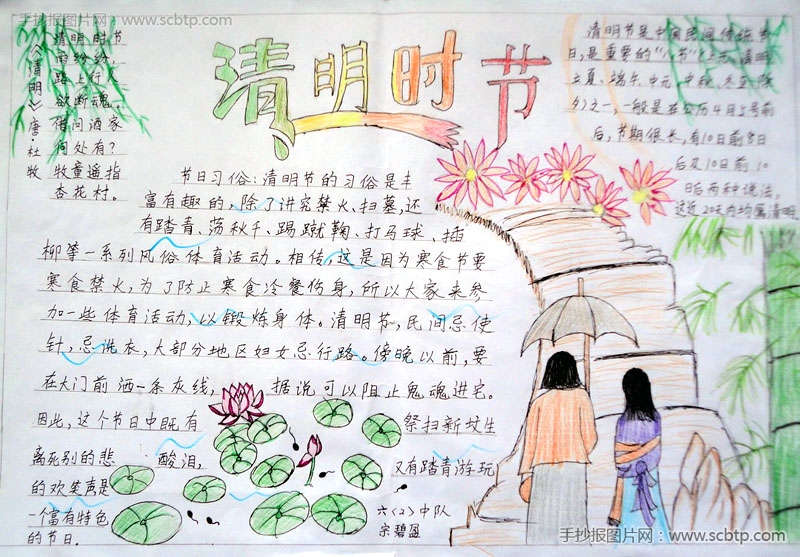 手抄报图片网：www.scbtp.com
清明时节
《清明》唐·杜牧
清明时节
雨纷纷，
路上行人
欲断魂。
借问酒家
何处有？
牧童遥指
杏花村。
清明节是中国民间传统节
日，是重要的“八节”(上元、清明
立夏、端午、中元、中秋、冬至、除
夕)之一，一般是在公历4月5号前
后，节期很长，有10日前8日
后及10日前10
日后两种说法，
这近20天内均属清明
节日习俗：清明节的习俗是丰
富有趣的，除了讲究禁火、扫墓，还
有踏青、荡秋千、踢蹴鞠、打马球、插
柳等一系列风俗体育活动。相传，这是因为寒食节要
寒食禁火，为了防止寒食冷餐伤身，所以大家来参
加一些体育活动，以锻炼身体。清明节，民间忌使
针，忌洗衣，大部分地区妇女忌行路。傍晚以前，要
在大门前洒一条灰线，据说可以阻止鬼魂进宅。
因此，这个节日中既有祭扫新坟生
离死别的悲酸泪，又有踏青游玩
的欢笑声是
一个富有特色
的节日.
六〈2〉中队
宋碧盈
手抄报图片网：www.scbtp.com